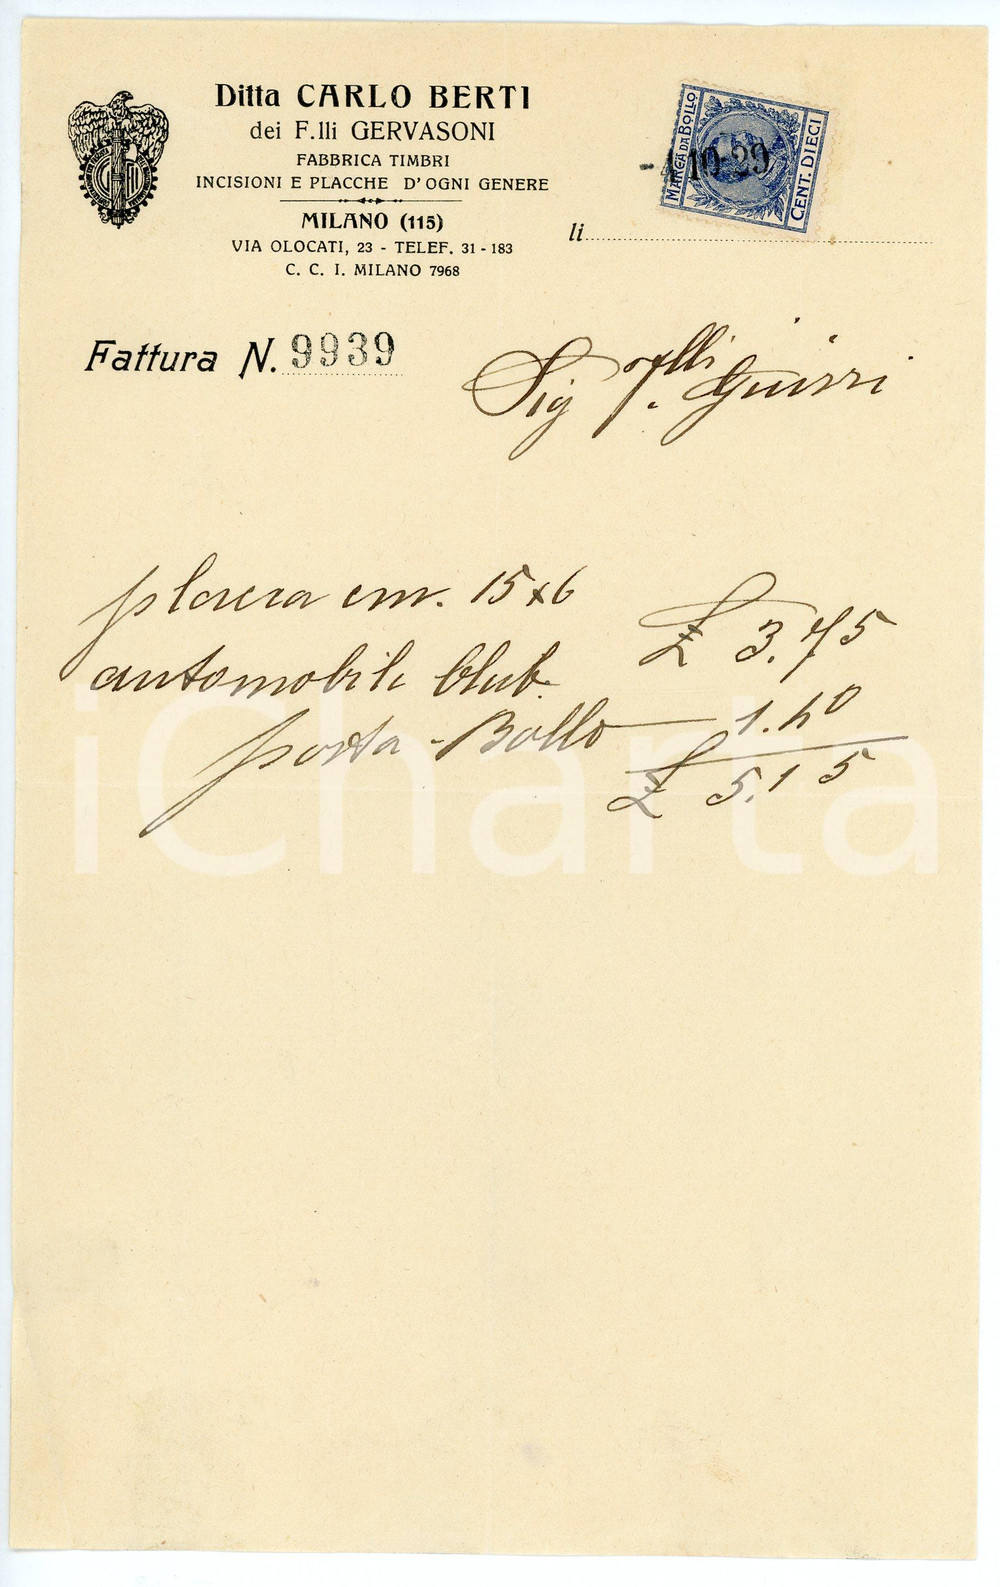 Ditta CARLO BERTI
dei F.lli GERVASONI
FABBRICA TIMBRI
INCISIONI E PLACCHE D'OGNI GENERE
MILANO (115)
VIA OLOCATI, 23 - TELEF. 31-183
C. C. I. MILANO 7968
MARCA DA BOLLO
CENT. DIECI
-4 10-29
li
Fattura N. 9939
Sig F.lli
placca cm. 15x6
£ 3.75
automobile Club.
porto - Bollo 1.40
£ 5.15
iCharta